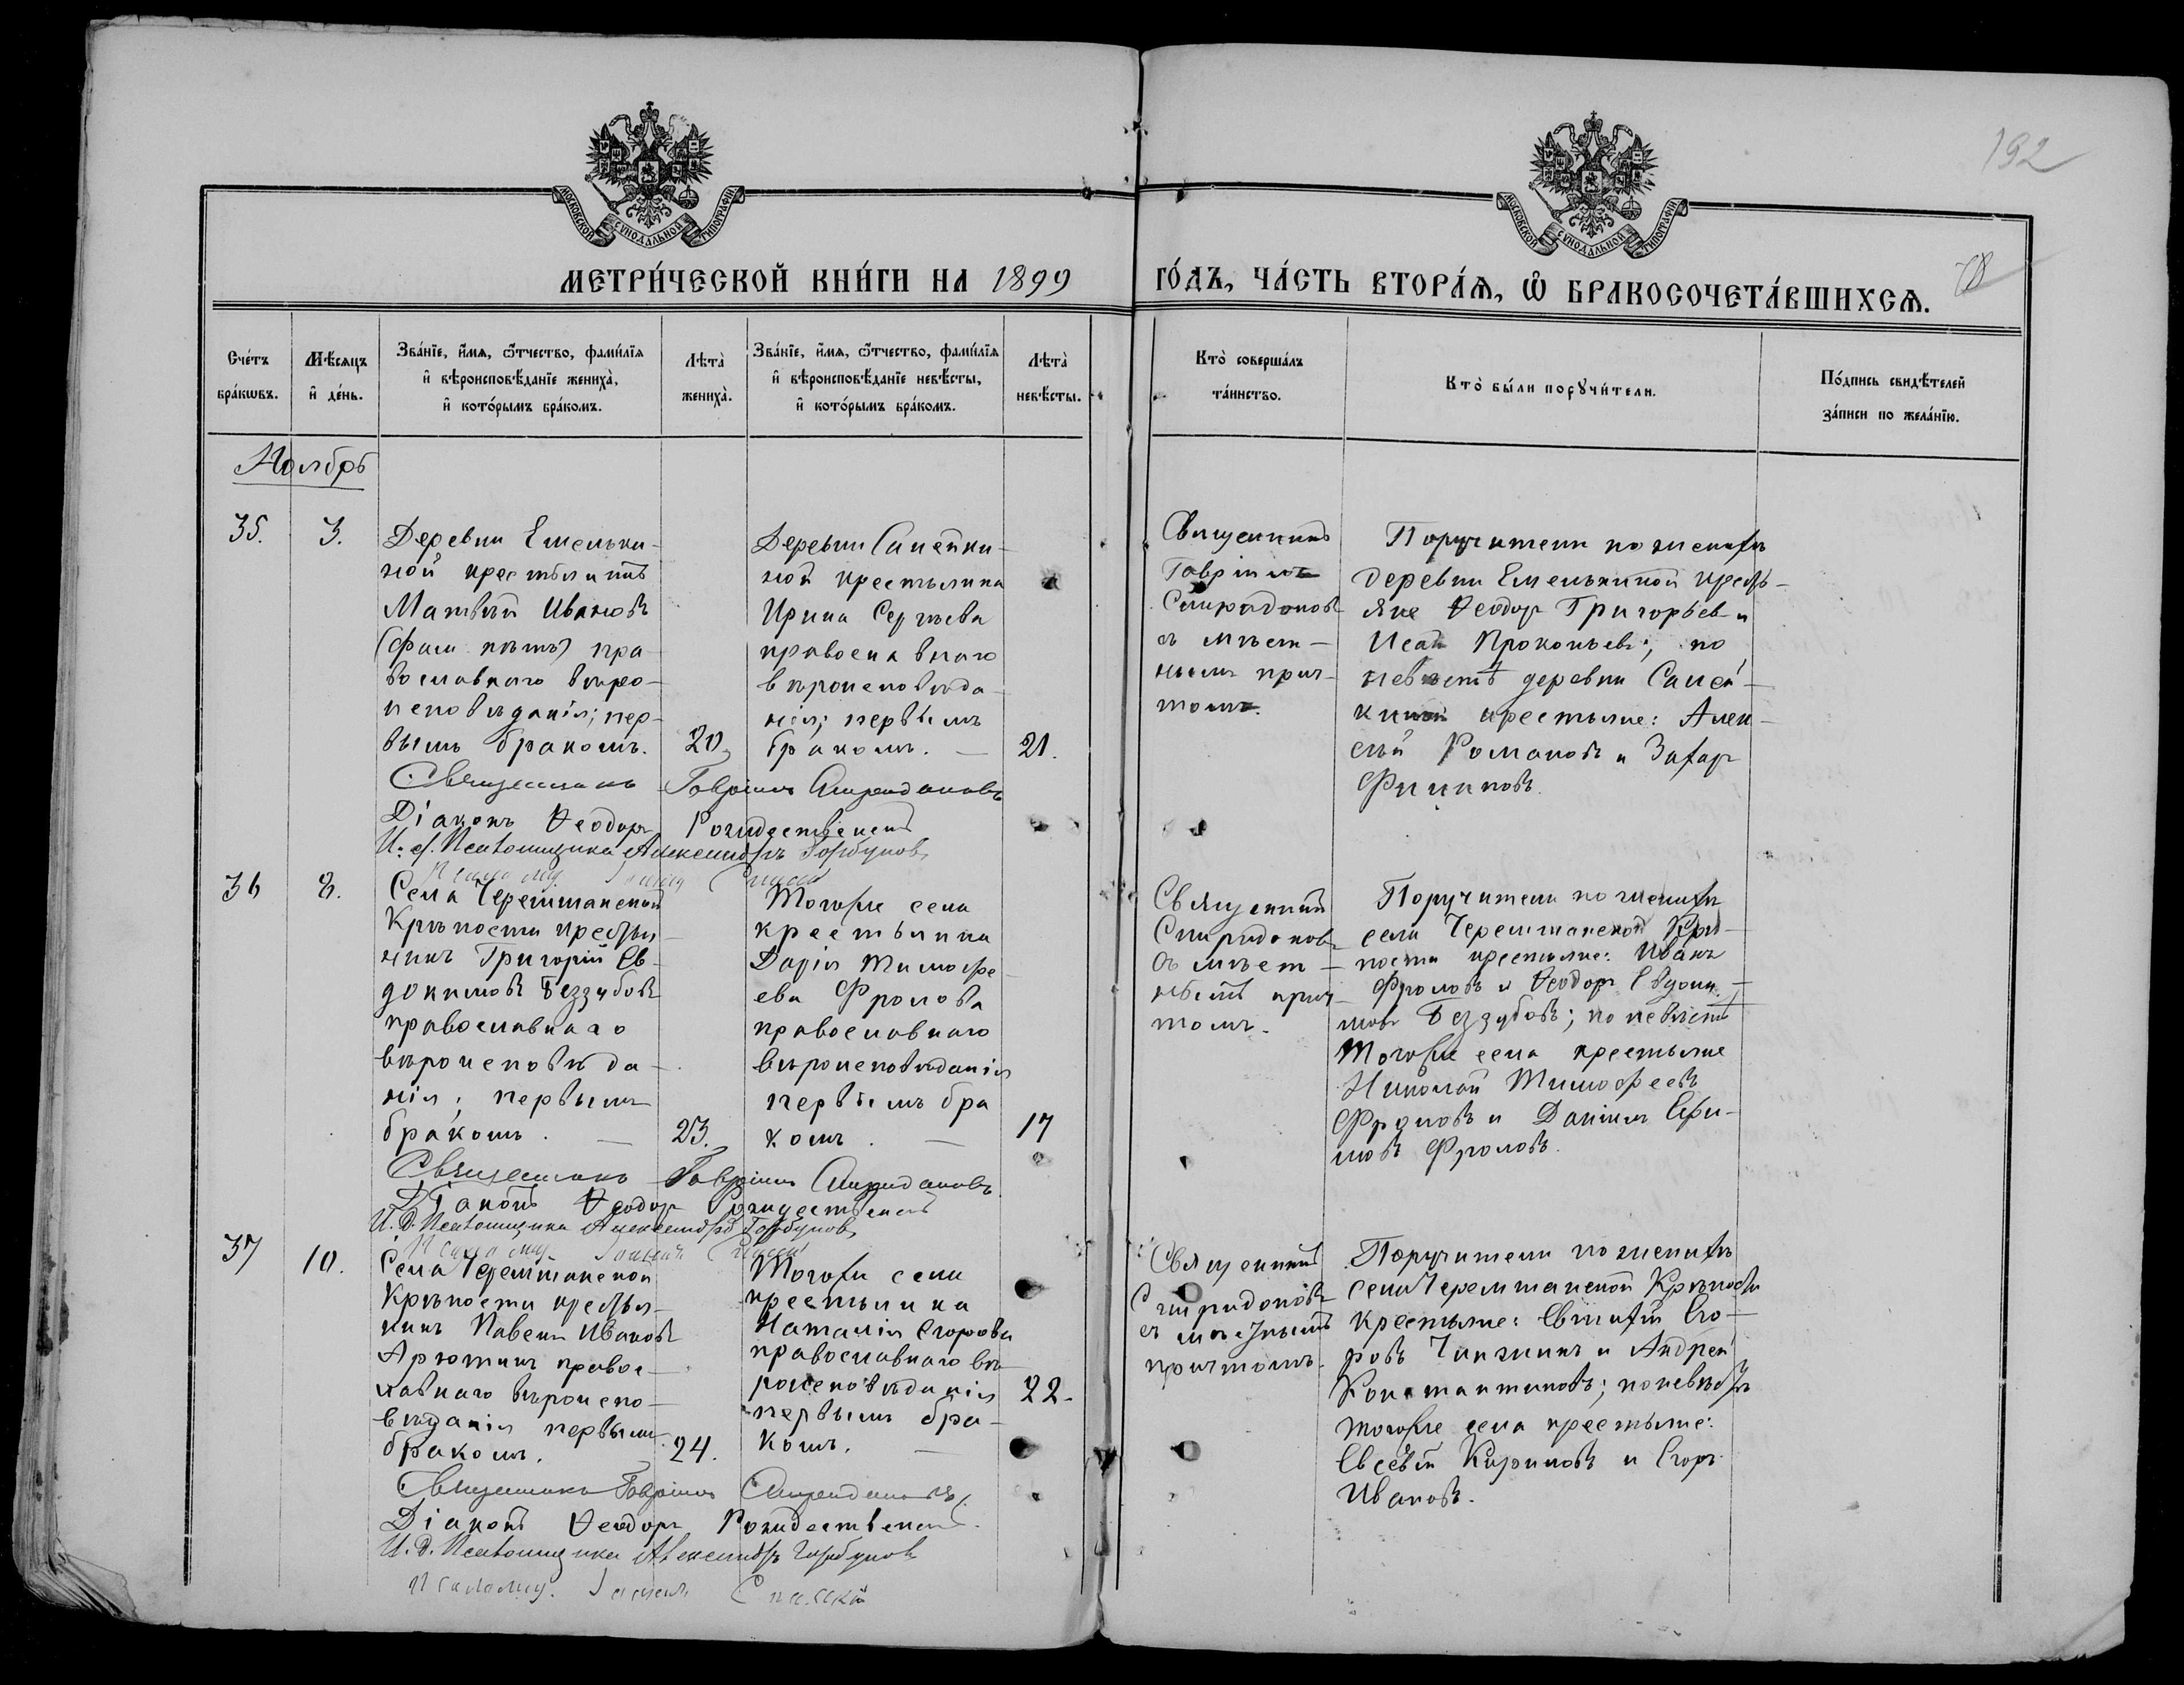 192
МОСКОВСКОЙ СѴНОДАЛЬНОЙ ТИПОГРАФІИ
МОСКОВСКОЙ СѴНОДАЛЬНОЙ ТИПОГРАФІИ
МЕТРИ́ЧЕСКОЙ КНИ́ГИ НА 1899 ГО́ДЪ, ЧА́СТЬ ВТОРА́Ѧ, Ѽ БРАКОСОЧЕТА́ВШИХСѦ.
Сче́тъ
бра́кѡвъ.
Мѣ́сѧцъ
и҆ де́нь.
Зва́нїе, и҆́мѧ, ѻ҆́тчество, фами́лїѧ
и҆ вѣроисповѣ́данїе жениха̀,
и҆ кото́рымъ бра́комъ.
Лѣта̀
жениха̀.
Зва́нїе, и҆́мѧ, ѻ҆́тчество, фами́лїѧ
и҆ вѣроисповѣ́данїе невѣ́сты,
и҆ кото́рымъ бра́комъ.
Лѣта̀
невѣ́сты.
Кто̀ соверша́лъ
та́инство.
Кто̀ бы́ли порꙋчи́тели.
По́дпись свидѣ́телей
за́писи по жела́нїю.
Ноябрь
35.
3.
Деревни Емельки-
ной крестьянинъ
Матвѣй Ивановъ
(фам. нѣтъ) пра-
вославнаго вѣро-
исповѣданія; пер-
вымъ бракомъ.
20.
Деревни Самейки-
ной крестьянка
Ирина Сергѣева
православнаго
вѣроисповѣда-
нія; первымъ
бракомъ. —
21.
Священникъ
Гавріилъ
Спиридоновъ
съ мѣст-
нымъ прич-
томъ.
Поручители по женихѣ
деревни Емелькиной кресть-
яне Ѳеодоръ Григорьевъ и
Исай Прокопьевъ; по
невѣстѣ деревни Самей-
киной крестьяне: Алек-
сѣй Романовъ и Захаръ
Филиповъ.
Священникъ Гавріилъ Спиридоновъ
Діаконъ Ѳеодоръ Рождественскій
И. д. Псаломщика Александръ Горбуновъ
Псаломщ. Спасскій
36
8.
Села Черемшанской
Крѣпости крестья-
нинъ Григорій Ев-
докимовъ Беззубовъ
православнаго
вѣроисповѣда-
нія; первымъ
бракомъ. —
23.
Тогоже села
крестьянка
Дарія Тимофе-
ева Фролова
православнаго
вѣроисповѣданія
первымъ бра
комъ. —
17
Священникъ
Спиридоновъ
съ мѣст-
нымъ прич-
томъ.
Поручители по женихѣ
села Черемшанской Крѣ-
пости крестьяне: Иванъ
Фроловъ и Ѳеодоръ Евдоки-
мовъ Беззубовъ; по невѣстѣ
тогоже села крестьяне
Николай Тимофеевъ
Фроловъ и Даніилъ Ефи-
мовъ Фроловъ.
Священникъ Гавріилъ Спиридоновъ
Діаконъ Ѳеодоръ Рождественскій
И. д. Псаломщика Александръ Горбуновъ
Псаломщ. Спасскій
37
10.
Села Черемшанской
Крѣпости крестья-
нинъ Павелъ Ивановъ
Арютинъ правос-
лавнаго вѣроиспо-
вѣданія первымъ
бракомъ.
24.
Тогоже села
крестьянка
Наталія Егорова
православнаго вѣ-
роисповѣданія
первымъ бра-
комъ. —
22.
Священникъ
Спиридоновъ
съ мѣстнымъ
причтомъ.
Поручители по женихѣ
села Черемшанской Крѣпости
крестьяне: Евтихій Его-
ровъ и Андрей
Константиновъ; по невѣстѣ
тогоже села крестьяне:
Евсевій Кириловъ и Егоръ
Ивановъ.
Священникъ Гавріилъ Спиридоновъ
Діаконъ Ѳеодоръ Рождественскій
И. д. Псаломщика Александръ Горбуновъ
Псаломщ. Спасскій